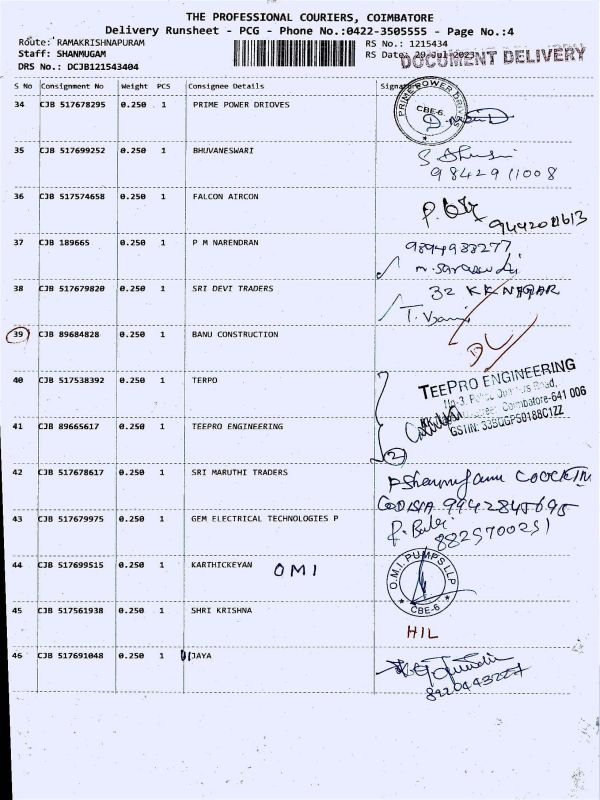 THE PROFESSIONAL COURIERS, COIMBATORE
Delivery Runsheet - PCG - Phone No.:0422-3505555 - Page No.:4
Route: RAMAKRISHNAPURAM RS No.: 1215434
Staff: SHANMUGAM RS Date: 20-Jul-2023
DOCUMENT DELIVERY
DRS No.: DCJB121543404
S No Consignment No Weight PCS Consignee Details Signature
34 CJB 517678295 0.250 1 PRIME POWER DRIOVES
PRIME POWER DRIVES
CBE-6.
35 CJB 517699252 0.250 1 BHUVANESWARI
98429 11008
36 CJB 517574658 0.250 1 FALCON AIRCON
37 CJB 189665 1 0.250 1 P M NARENDRAN
9894933277
38 CJB 517679820 0.250 1 SRI DEVI TRADERS
32 KK NAGAR
39 CJB 89684828 0.250 1 BANU CONSTRUCTION
DL
40 CJB 517538392 0.250 1 TERPO
TEEPRO ENGINEERING
Coimbatore-641 006
41 CJB 89665617 0.250 1 TEEPRO ENGINEERING
2
42 CJB 517678617 0.250 1 SRI MARUTHI TRADERS
43 CJB 517679975 0.250 1 GEM ELECTRICAL TECHNOLOGIES P
44 CJB 517699515 0.250 1 KARTHICKEYAN OMI
O.M.I. PUMPS LLP
CBE-6
45 CJB 517561938 0.250 1 SHRI KRISHNA
HIL
46 CJB 517691048 0.250 1 JAYA